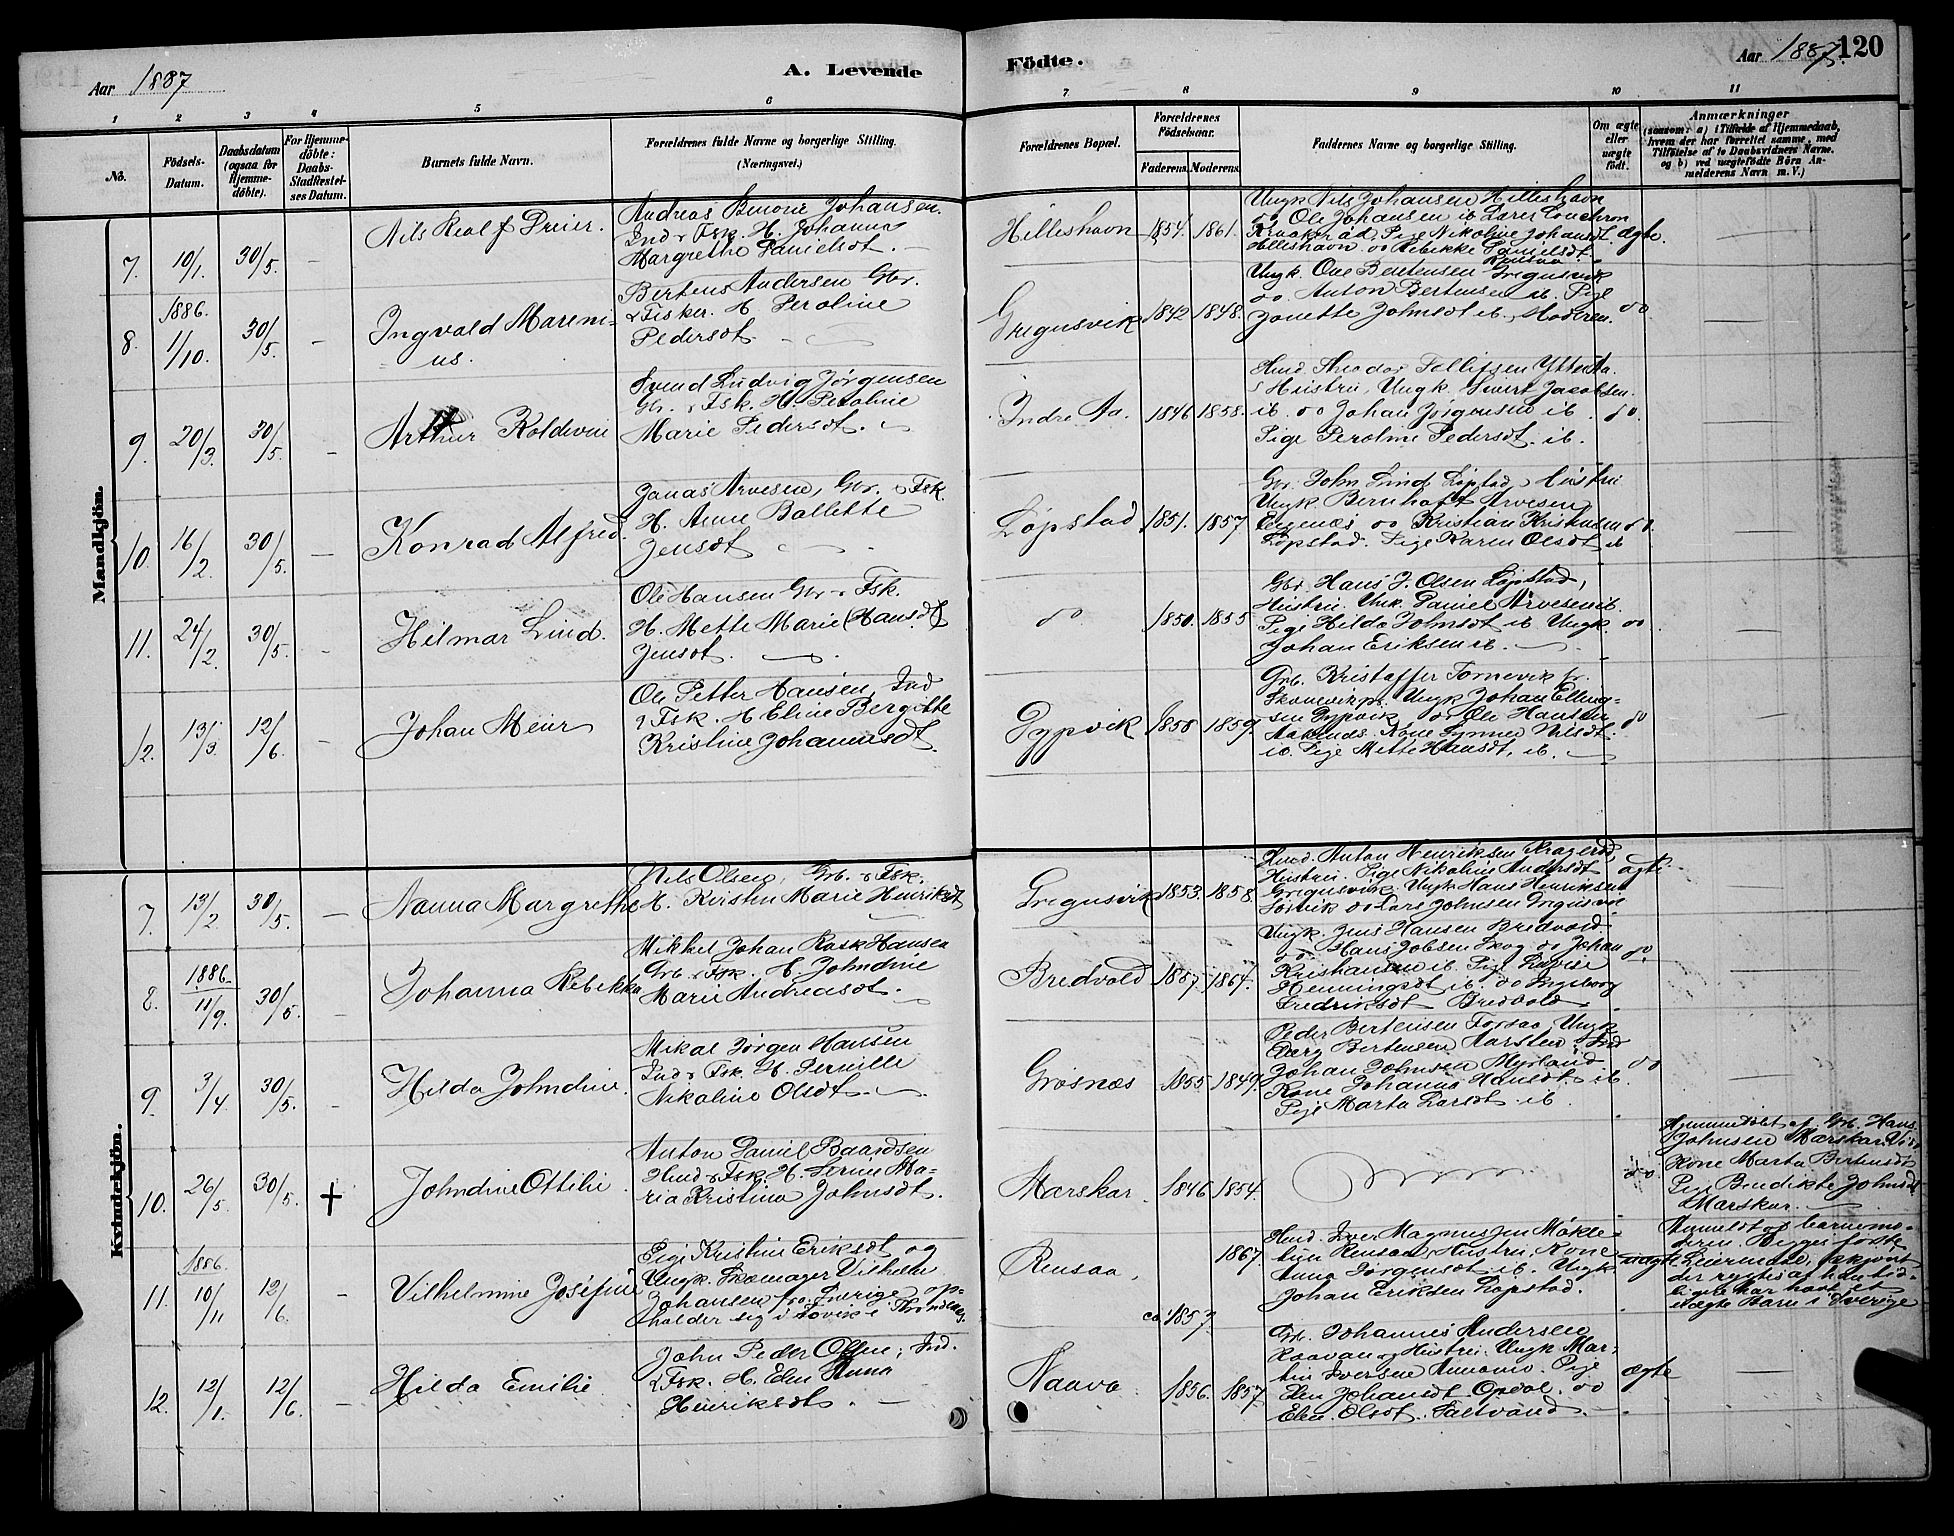 Aar 1887
A. Levende
Fødte.
Aar 1887.
120
1 2 3 4 5 6 7 8 9 10 11
No.
Fødsels-
Datum.
Daabsdatum
(ogsaa for
Hjemme-
døbte).
For Hjemme-
døbte:
Daabs-
Stadfæstel-
ses Datum.
Barnets fulde Navn.
Forældrenes fulde Navne og borgerlige Stilling.
(Næringsvei.)
Forældrenes Bopæl.
Forældrenes
Fødselsaar.
Faderens.
Moderens.
Faddernes Navne og borgerlige Stilling.
Om ægte
eller
uægte
født.
Anmærkninger
(saasom: a) i Tilfælde af Hjemmedaab,
hvem der har forrettet samme, med
Tilføielse af to Daabsvidners Navne.
og b) ved uægtefødte Børn An-
melderens Navn m. V.)
Mandkjøn.
7. 10/1. 30/5. –
Nils Realf Dreier.
Andreas Benonie Johansen.
Ind & Fsk. H. Johanna
Margrethe Danielsdt. –
Hilleshavn 1854. 1861.
Ungk Nils Johansen Hilleshavn
do Ole Johansen ib Lærer
Pige Nikoline Johansdt.
Hilleshavn do Rebikke Danielsdt.
ægte.
8. 1886. 1/10. 30/5. –
Ingvald Mareni-
us.
Bertens Andersen Gbr.
& Fisker. H. Peroline
Pedersdt.
Gregusvik 1842 1848.
Ungk. Ove Bertensen Gregusvik
do. Anton Bertensen ib. Pige
Jonette Johnsdt ib. Moderen.
do
9. 20/3. 30/5. –
Arthur Koldevin
Svend Ludvig Jørgensen
Gbr. & Fsk. H. Peroline
Marie Pedersdt.
Indre Aa. 1846 1858.
Hmd. Theodor Tellefsen Ytter Aa.
& Hustru, Ungk. Sivert Jacobsen
ib. do Johan Jørgensen ib.
Pige Peroline Pedersdt. ib.
do.
10. 16/2. 30/5. –
Konrad Alfred.
Janas Arvesen, Gbr. & Fsk.
H. Anne Bollette
Jensdt
Løpstad 1851. 1857.
Gbr. John Lind Løpstad & Hustru
Ungk Bernhoft Arvesen
do Kristian Kristiansen
Løpstad. Pige Karen Olsdt ib
do.
11. 24/2. 30/5. –
Hilmar Lind.
Ole Hansen Gbr & Fsk.
H. Mette Marie (Hansdt)
Jensdt.
do. 1850. 1855
Gbr. Hans J. Olsen Løpstad,
Hustru. Ungk. Daniel Arvesen ib.
Pige Hilda Johnsdt ib Ungk.
Johan Eriksen ib.
do
12. 13/3. 12/6. –
Johan Meier
Ole Petter Hansen, Ind
& Fsk. H Eline Bergitte
Kristine Johannesdt.
Dypvik 1858 1859.
Grb. Kristoffer Tornevik fr.
Skonevikpr. Ungk Johan Elling-
sen Dypvik do Ole Hansen
Kone Nilsdt.
ib. Pige Mette Hansdt, ib.
do
Kvindekjøn.
7. 13/2. 30/5. –
Nanna Margrethe
Nils Olsen, Grb. & Fsk.
H. Kirsten Marie Henriksdt
Gregusvik 1853. 1858.
Hmd. Anton Henriksen
Hustru. Pige Nikoline Andersdt
Gregusvik. Ungk Hans Henriksen
Sørvik do Lars Johnsen Gregusvik
ægte.
8. 1886. 11/9. 30/5. –
Johanna Rebekka
Mikkel Johan Rask Hansen
Grb. & Fsk. H. Johndine
Marie Andreasdt.
Bredvold 1857. 1864.
Ungk. Jens Hansen Bredvold.
do. Hans Jobsen Skog do Johan
Kristiansen ib. Pige Lovise
Henningsdt ib. do Ingeborg
Fredriksdt Bredvold.
do.
9. 3/4. 30/5. –
Hilda Johndine
Mikal Jørgen Hansen
Ind & Fsk. H. Pernille
Nikoline Olsdt.
Grøsnæs 1855 1849.
Peder Bertensen Forsaa, Ungk
Bertensen Aarsten, Ind
Johan Johnsen Myrland.
Kone Johanna Hansdt. ib.
Pige Marta Larsdt ib.
do
10. 26/5. 30/5. +
Johndine Ottilie
Anton Daniel Baardsen
Hmd & Fsk. H. Serine Ma-
ria Kristina Johnsdt.
Marskar. 1846 1854.
do.
Hjemmedøbt af Grb. Hans
Johnsen Marskar.
Kone Marta Bertensdt
Pige Bendikte Johnsdt
Marskar.
11. 1886. 10/11 12/6. –
Vilhelmine Josefine
Pige Kristine Eriksdt og
Ungk. Skomager Vilhelm
Johansen fra Sverige, op-
holder sig i Tovik i Trondenæs.
Rensaa, ca. 1857. 1867.
Hmd. Iver Magnussen Møkle-
bin Rensaa, Hustru, Kone
Anna Jørgensdt ib. Ungk
Johan Eriksen Løpstad.
uægte
Anmeldt af barnemo-
deren. Begges første
Leiermaal, skjønt
der rygtes at han tid-
ligere har havt et
uægte Barn i Sverige
12. 12/1. 12/6. –
Hilda Emilie
John Peder Olsen, Ind.
& Fsk. H. Elen Anna
Henriksdt.
Naava 1856. 1857
Grb. Johannes Andersen
Raavan og Hustru. Ungk Mar-
tin Iversen Pige
Elen Johansdt Opdal. do
Elen Olsdt. Saltvand.
ægte